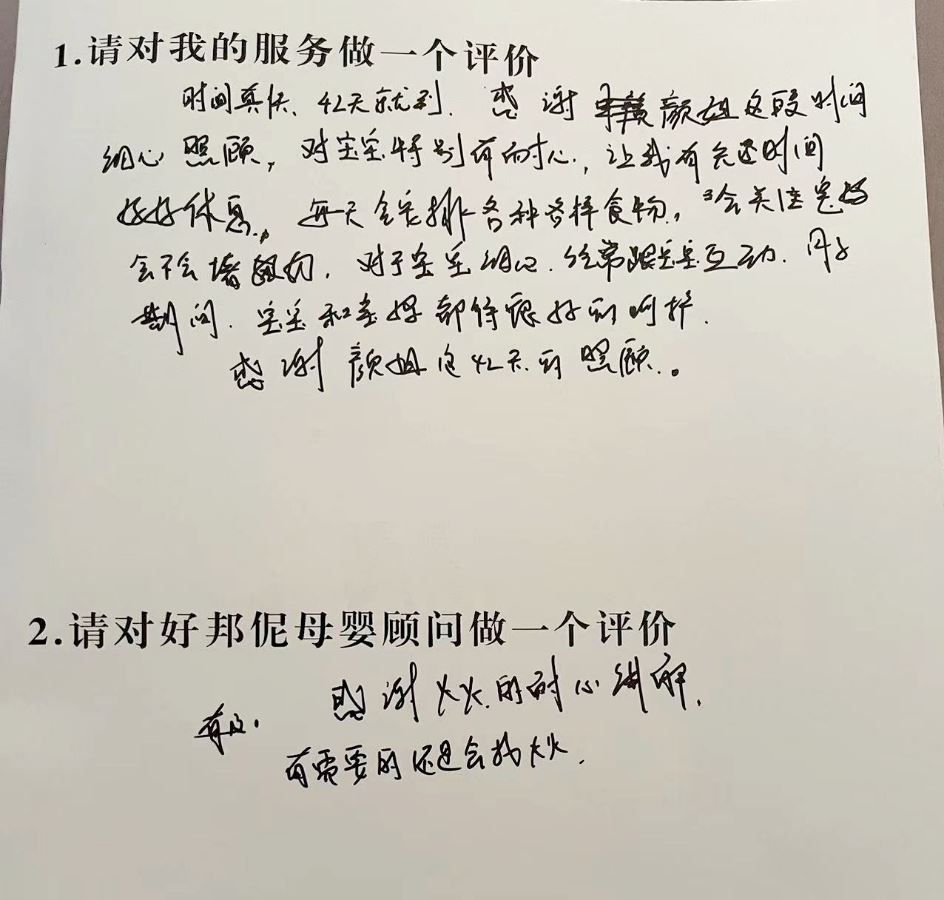 1.请对我的服务做一个评价
时间真快、42天就到. 感谢颜姐这段时间
细心照顾, 对宝宝特别有耐心, 让我有充足时间
好好休息, 每天会安排各种各样食物,
会不会堵奶, 对于宝宝细心. 经常跟宝宝互动. 月子
期间. 宝宝和宝妈都得很好的呵护.
感谢颜姐这42天的照顾.
2.请对好邦伲母婴顾问做一个评价
感谢火火的耐心讲解.
有需要的还是会找火火.